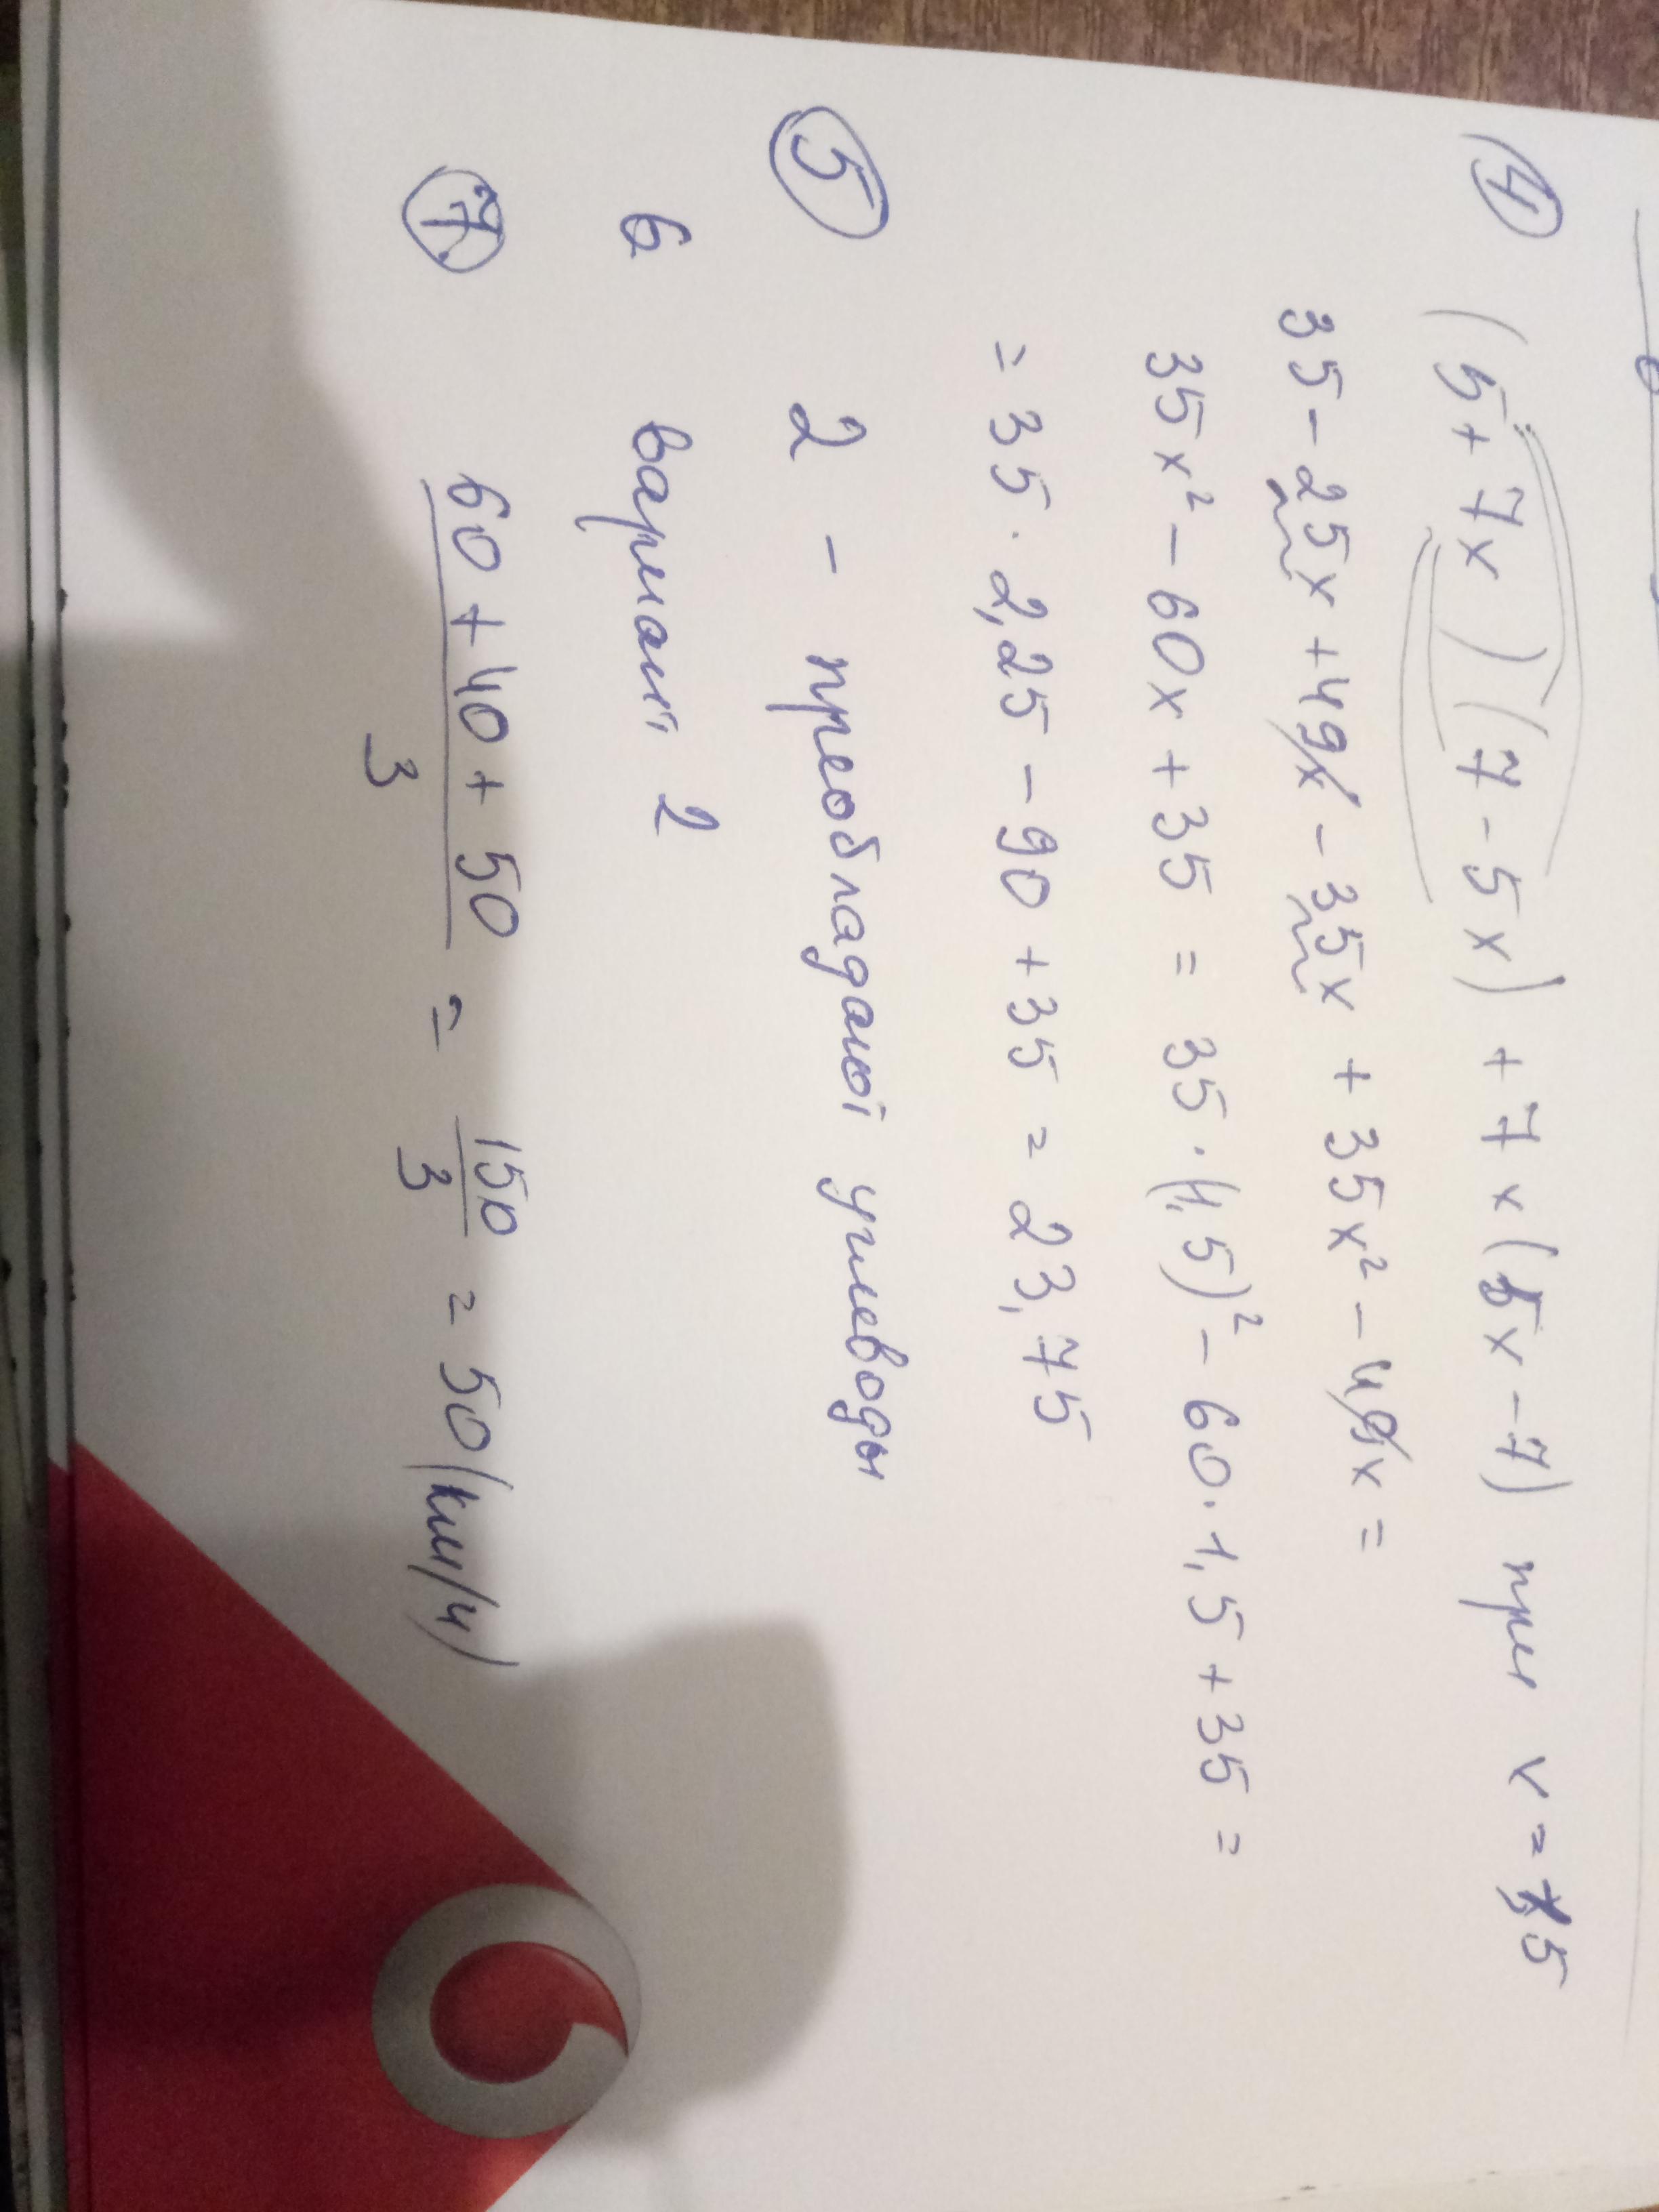 4
(5+7x)(7-5x)+7x(5x-7) при
35-25x+49x-35x+35x²-49x=
35x²-60x+35=35·(1,5)²-60·1,5+35=
=35·2,25-90+35=23,75
5 2 - преобладают углеводы
6 вариант 2
7 60+40+50
3
= 150
3
= 50 (км/ч)